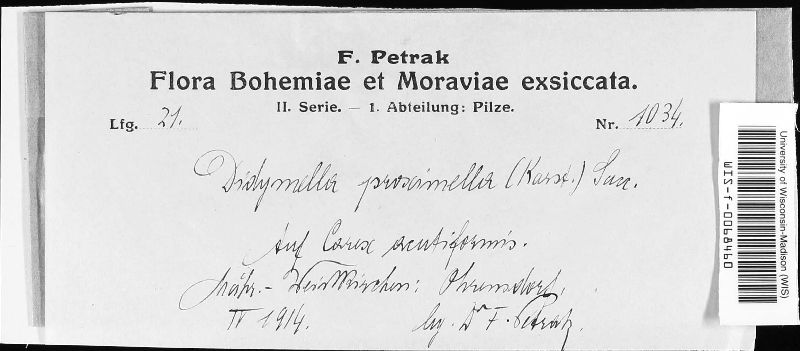 F. Petrak
Flora Bohemiae et Moraviae exsiccata.
II. Serie. — 1. Abteilung: Pilze.
Lfg. 21.
Nr. 1034.
Didymella proximella (Karst.) Sacc.
Auf Carex acutiformis.
Mähr.- Weisskirchen: Ohrensdorf,
IV 1914.
lg. Dr F. Petrak.
University of Wisconsin-Madison (WIS)
WIS-f-0068460